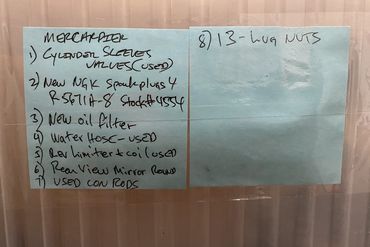 MERCARDIER
1) CYLENDER SLEEVES
VALVES (USED)
2) New NGK Sparkplugs 4
R5671A-8 Stock# 4554
3) NEW oil filter
4) Water HOSE - USED
5) Rev Limiter + coil (USED
6) Rear View Mirror Round
7) USED CON RODS
8) 13 - Lug NUTS